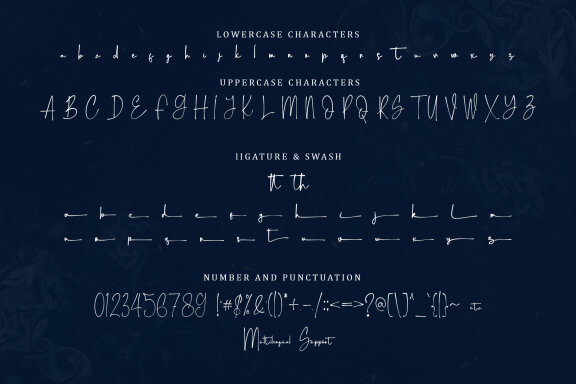 LOWERCASE CHARACTERS
a b c d e f g h i j k l m n o p q r s t u v w x y z
UPPERCASE CHARACTERS
A B C D E F G H I J K L M N O P Q R S T U V W X Y Z
IIGATURE & SWASH
tt th
a b c d e f g h i j k l m
n o p q s r t u v w x y z
NUMBER AND PUNCTUATION
0123456789 !"#$%&()*+,-./:;<=>?@[\]^_`{|}~ etc
Multilingual Support